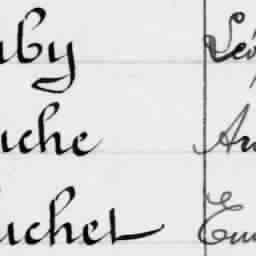 uby Léo
uche Au
uchet Em